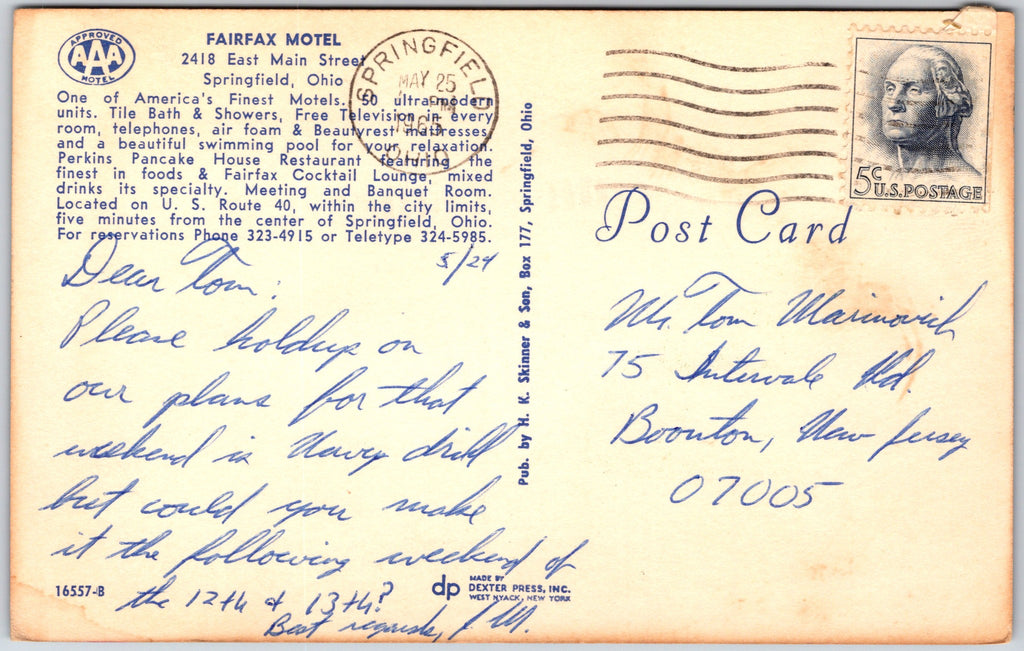 APPROVED
AAA
MOTEL
FAIRFAX MOTEL
2418 East Main Street
Springfield, Ohio
One of America's Finest Motels. 50 ultra-modern
units. Tile Bath & Showers, Free Television in every
room, telephones, air foam & Beautyrest mattresses
and a beautiful swimming pool for your relaxation.
Perkins Pancake House Restaurant featuring the
finest in foods & Fairfax Cocktail Lounge, mixed
drinks its specialty. Meeting and Banquet Room.
Located on U. S. Route 40, within the city limits,
five minutes from the center of Springfield, Ohio.
For reservations Phone 323-4915 or Teletype 324-5985.
SPRINGFIELD
MAY 25
PM
OHIO
5c U.S.POSTAGE
Post Card
5/24
Dear Tom:
Please holdup on
our plans for that
weekend is Navy drill
but could you make
it the following weekend of
the 12th & 13th?
Best regards, M.
Mr. Tom Marinovich
75 Intervale Rd.
Boonton, New Jersey
07005
Pub. by H. K. Skinner & Son, Box 177, Springfield, Ohio
16557-B
dp
MADE BY
DEXTER PRESS, INC.
WEST NYACK, NEW YORK